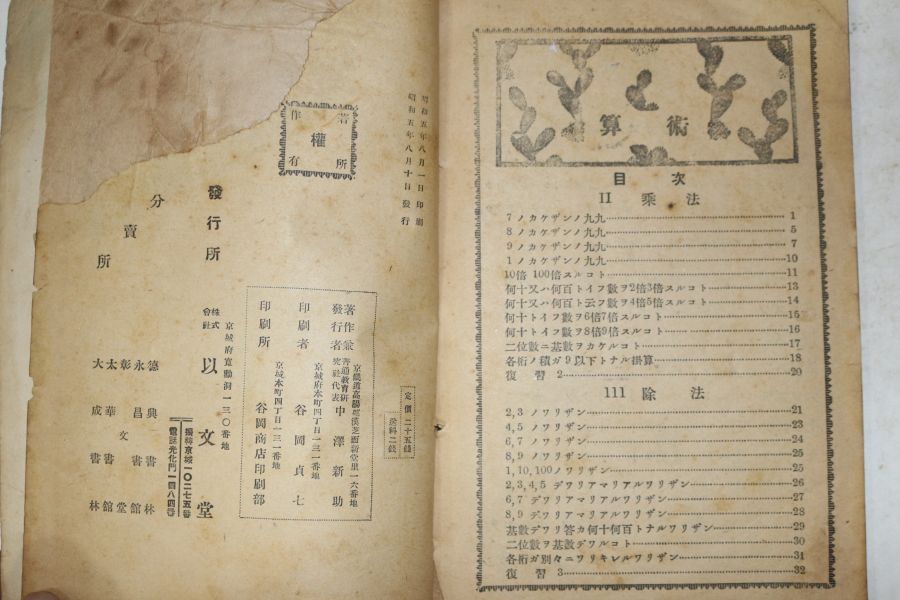 昭和五年八月一日印刷
昭和五年八月十日發行
著作
權
所有
定價二十五錢
送料二錢
著作兼
發行者
京畿道高陽郡漢芝面新堂里一六番地
普通敎育研
究社代表
中澤新助
印刷者
京城府本町四丁目一三一番地
谷岡貞七
印刷所
京城本町四丁目一三一番地
谷岡商店印刷部
發行所
京城府寬勳洞一三〇番地
株式
會社
以文堂
振替京城一〇二七五番
電話光化門一四八四番
分賣所
德興書林
永昌書館
彰文堂
太華書館
大成書林
算術
目次
II 乘法
7ノカケザンノ九九 1
8ノカケザンノ九九 5
9ノカケザンノ九九 7
1ノカケザンノ九九 10
10倍 100倍スルコト 11
何十又ハ何百トイフ數ヲ2倍3倍スルコト 13
何十又ハ何百ト云フ數ヲ4倍5倍スルコト 14
何十トイフ數ヲ6倍7倍スルコト 15
何十トイフ數ヲ8倍9倍スルコト 16
二位數ニ基數ヲカケルコト 17
各桁ノ積ガ9以下トナル掛算 18
復習 2 20
111 除法
2,3 ノワリザン 21
4,5 ノワリザン 23
6,7 ノワリザン 24
8,9 ノワリザン 25
1,10,100ノワリザン 25
2,3,4,5 デワリアマリアルワリザン 26
6,7 デワリアマリアルワリザン 27
8,9 デワリアマリアルワリザン 28
基數デワリ答カ何十何百トナルワリザン 29
二位數ヲ基數デワルコト 30
各桁ガ別々ニワリキレルワリザン 31
復習 3 32